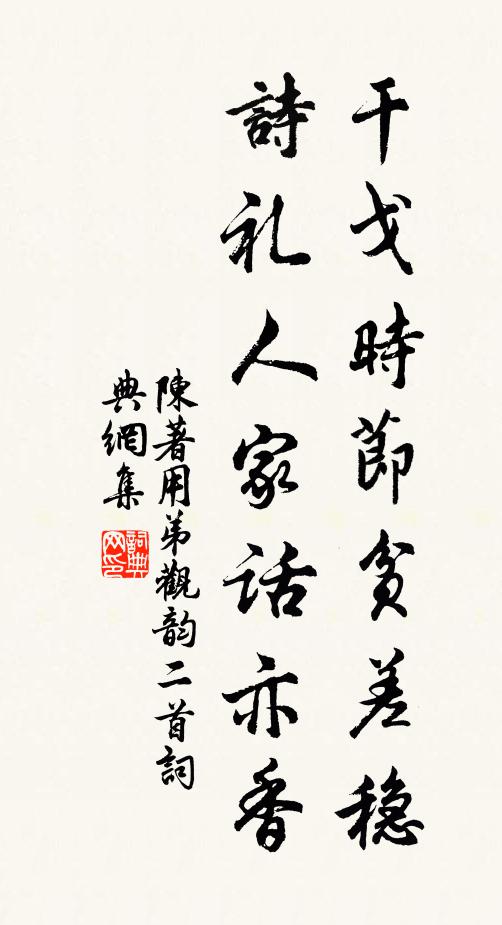 干戈時節貧差穩
詩礼人家話亦香
陳著用弟觀韵二首詞
典網集
詞典网印